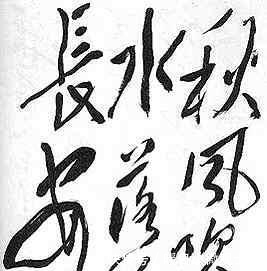 秋風吹
水落
長安